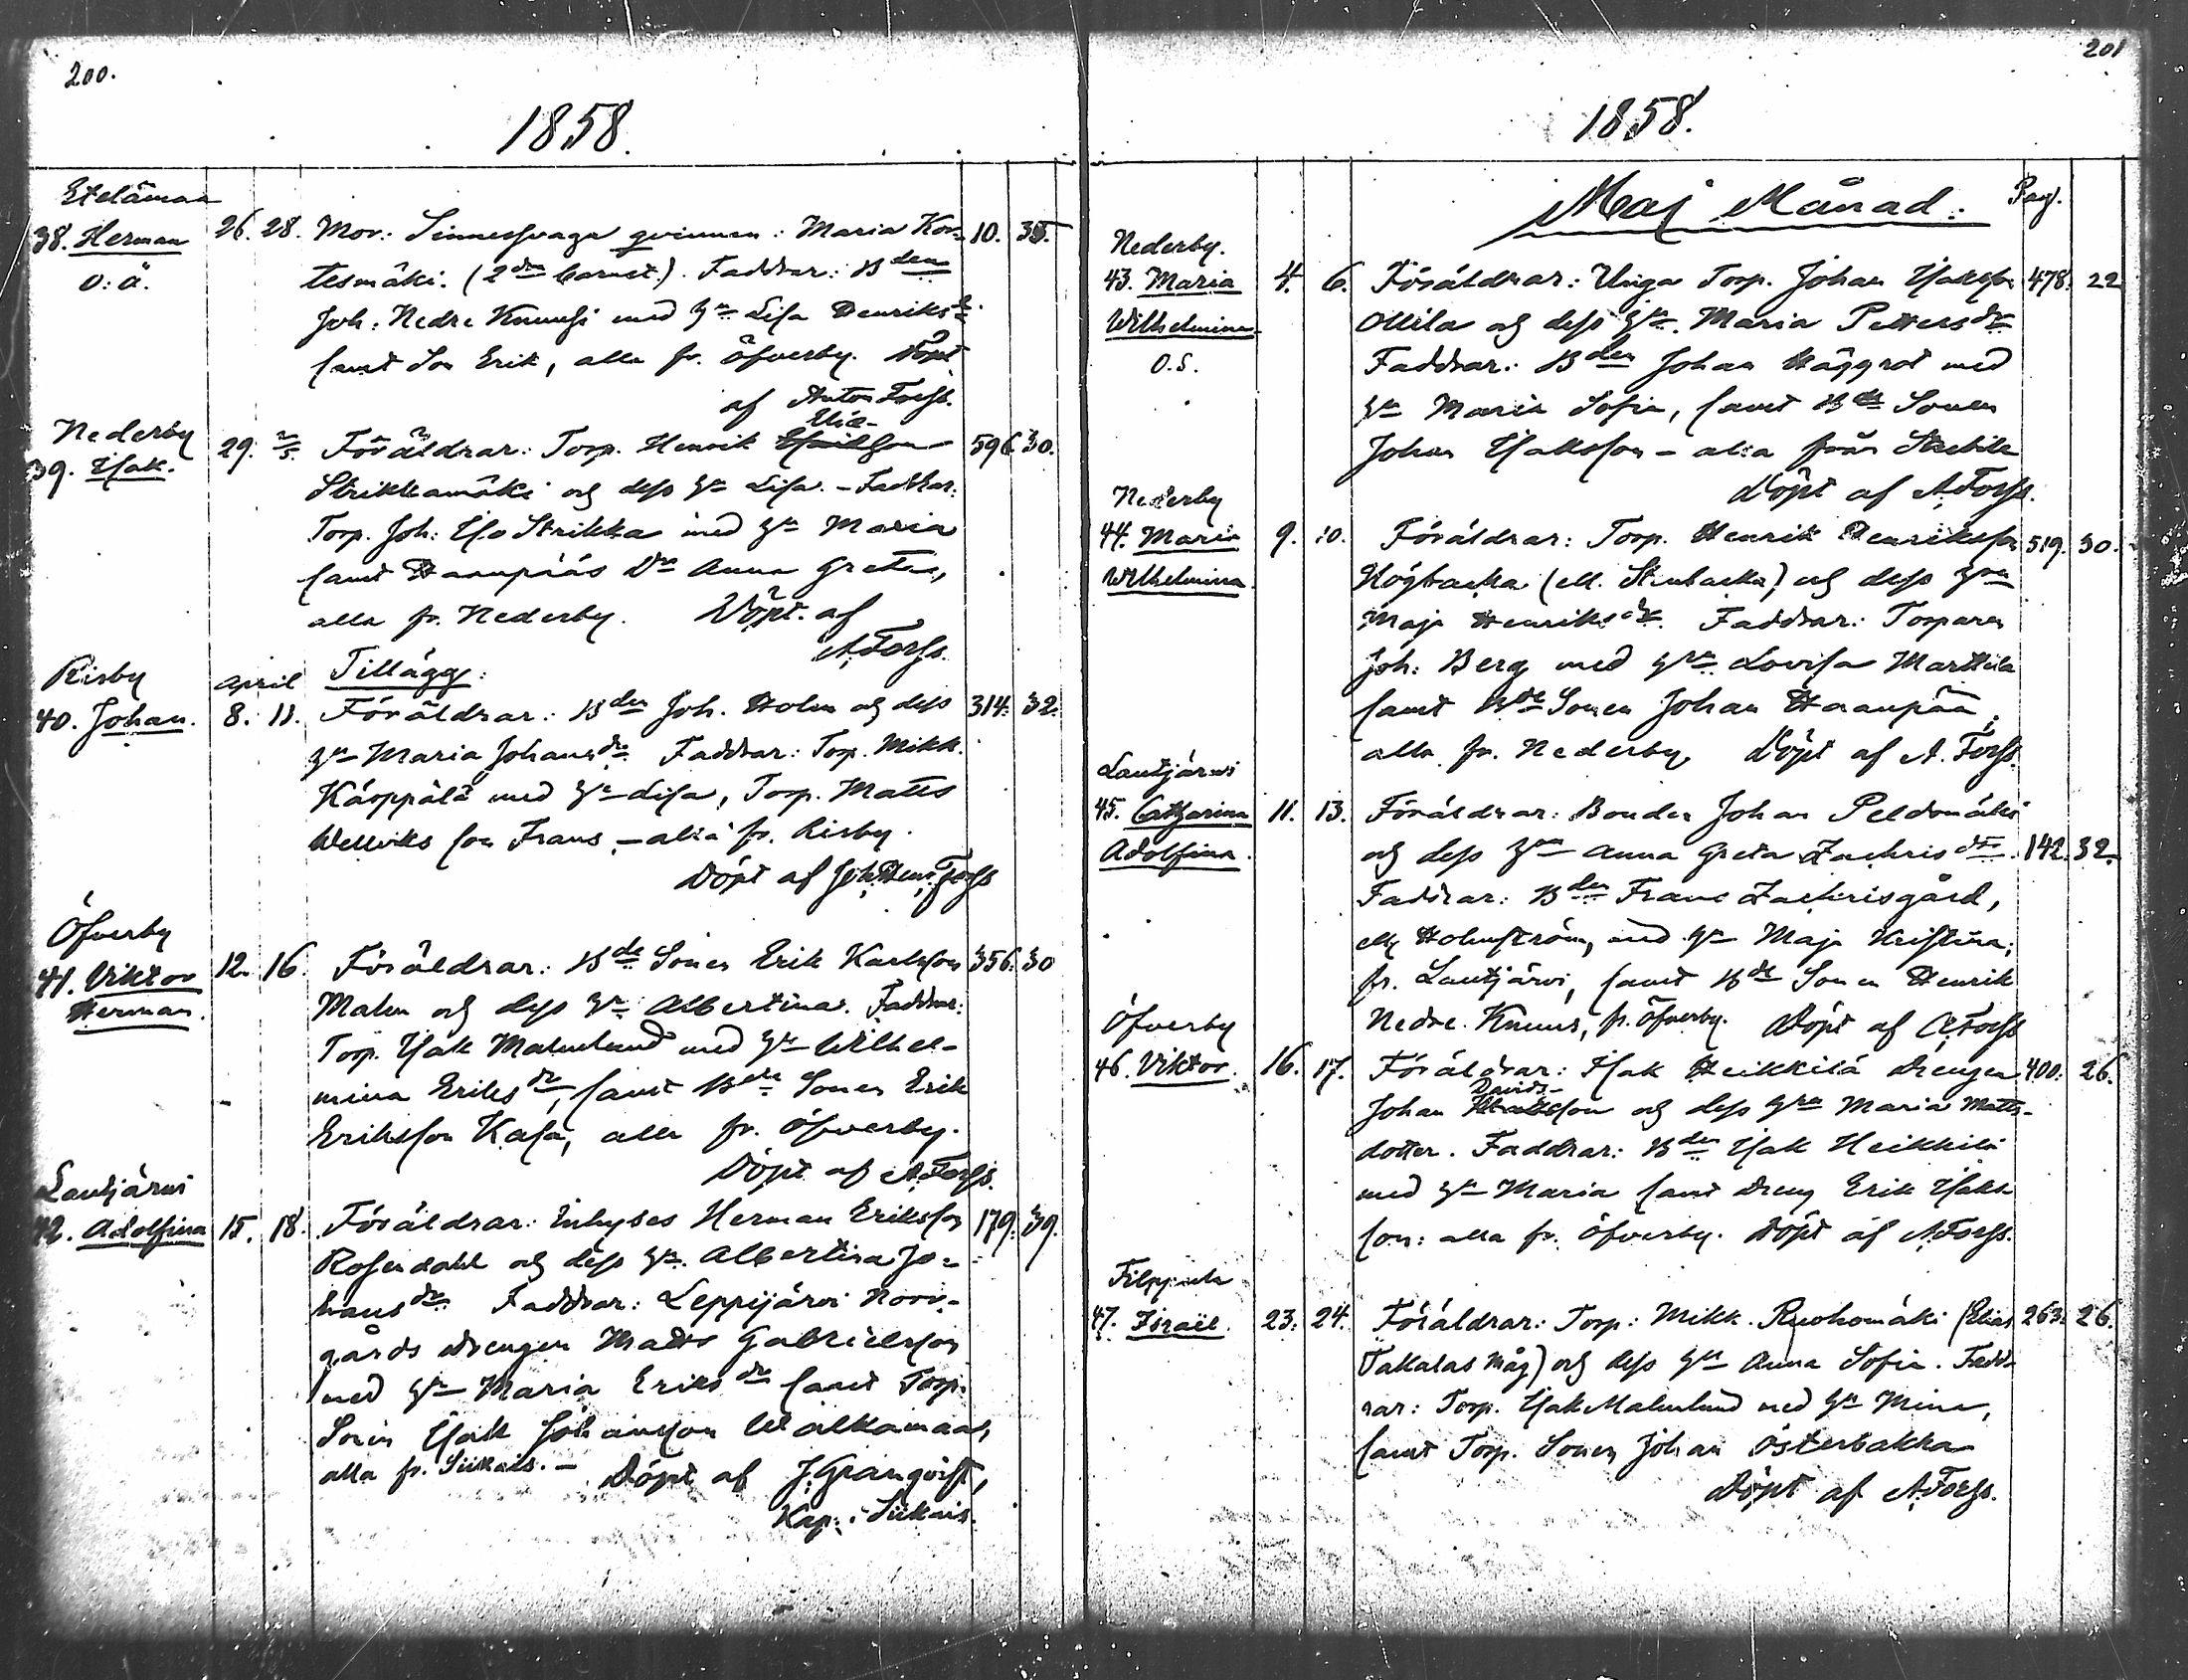 200.
1858.
Etelämaa
38. Herman 26. 28. Mor: Sinnessvaga qvinnan: Maria Kon- 10. 35.
O. ä. tesmäki. (2dra barnet). Faddrar: Bden
Joh: Nedre Knuussi med hu Lisa Henriksdr
samt Son Erik, alla fr. Öfverby. Döpt
af Anton Forss.
Nederby
39. Isak. 29. 2/5. Föräldrar: Torp. Henrik 596. 30.
Strikkamäki och dess hu Lisa. - Faddrar:
Torp. Joh: Iso Strikka med hu Maria
samt Haanpääs Dr Anna Greta,
alla fr. Nederby. Döpt. af
A. Forss.
Risby April Tillägg:
40. Johan. 8. 11. Föräldrar: Bden Joh. Holm och dess 314. 32.
hu Maria Johansdr. Faddrar: Torp. Mikk.
Kärppälä med hu Lisa, Torp. Matts
Wellviks son Frans, - alla fr. Risby.
Döpt af Joh. Henr. Forss
Öfverby
41. Viktor 12. 16. Föräldrar: Bde Sonen Erik Karlsson 356. 30
Herman. Malm och dess hu Albertina. Faddrar:
Torp. Isak Malmlund med hu Wilhel-
mina Eriksdr, samt Bde Sonen Erik
Eriksson Kasa, alla fr. Öfverby.
Döpt af A. Forss.
Lautjärwi
42. Adolfina 15. 18. Föräldrar: Inhyses Herman Eriksson 179. 39.
Rosendahl och dess hu. Albertina Jo-
hansdr. Faddrar: Leppijärvi Norr-
gårds drengen Matts Gabrielsson
med hu Maria Eriksdr samt Torp.
Sonen Isak Johansson Walkamaa,
alla fr. Siikais. - Döpt af J. Granqvist,
Kap. i Siikais.
201
1858.
Maj Månad. Pag.
Nederby.
43. Maria 4. 6. Föräldrar: Unga Torp. Johan Isaksson 478. 22
Wilhelmina Ollila och dess hu. Maria Pettersdr
O. S. Faddrar: Bden Johan Häggrot med
hu Maria Sofia, samt Bde Sonen
Johan Isaksson - alla från
Döpt af A. Forss.
Nederby
44. Maria 9. 10. Föräldrar: Torp. Henrik Henriksson 519. 30.
Wilhelmina. Högbacka (ell. Stenbacka) och dess hu
Maja Henriksdr. Faddrar: Torparen
Joh: Berg med hu Lovisa Marttila
samt Bde Sonen Johan Haanpää,
alla fr. Nederby. Döpt af A. Forss.
Lautjärwi
45. Catharina 11. 13. Föräldrar: Bonden Johan Peldomäki
Adolfina. och dess hu Anna Greta Zachrisdtr. 142. 32.
Faddrar: Bden Frans Zachrisgård,
ell. Holmström, med hu Maja Kristina,
fr. Lautjärvi, samt Bde Sonen Henrik
Nedre Knuus, fr. Öfverby. Döpt af A. Forss
Öfverby
46. Viktor. 16. 17. Föräldrar: Isak Heikkilä drengen 400. 26.
Davids-
Johan son och dess hu Maria Matts-
dotter. Faddrar: Bden Isak Heikkilä
med hu Maria samt dreng Erik Isaks-
son: alla fr. Öfverby. Döpt af A. Forss.
Filppula
47. Israël. 23. 24. Föräldrar: Torp: Mikk. Ruohomäki (Elias 263. 26.
Takalas Måg) och dess hu Anna Sofia. Fadd-
rar: Torp. Isak Malmlund med hu Mina,
samt Torp. Sonen Johan Österbakka
Döpt af A. Forss.